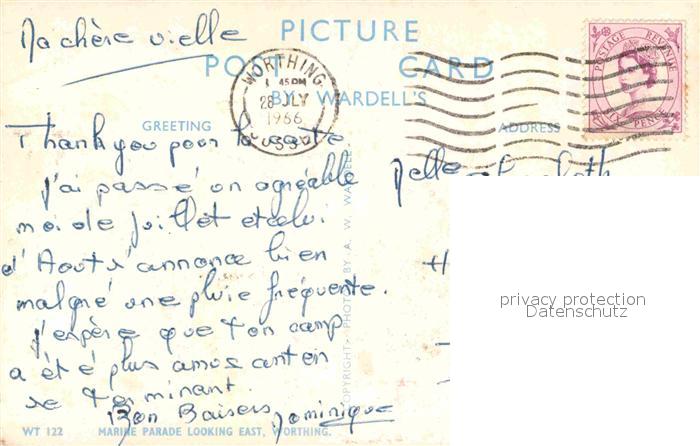 Ma chère vielle
PICTURE
POST CARD
BY WARDELL'S
WORTHING
45 PM
28 JLY
1966
SUSSEX
POSTAGE REVENUE
SIX PENCE
GREETING
ADDRESS
Thank you pour ta carte
j'ai passé un agréable
moi de juillet et celui
d'Aout s'annonce bien
malgré une pluie fréquente.
J'espère que ton camp
a été plus amusant en
se terminant.
Bon Baisers Dominique
Melle
COPYRIGHT. PHOTO BY A. W. WARDELL.
privacy protection
Datenschutz
WT 122 MARINE PARADE LOOKING EAST, WORTHING.